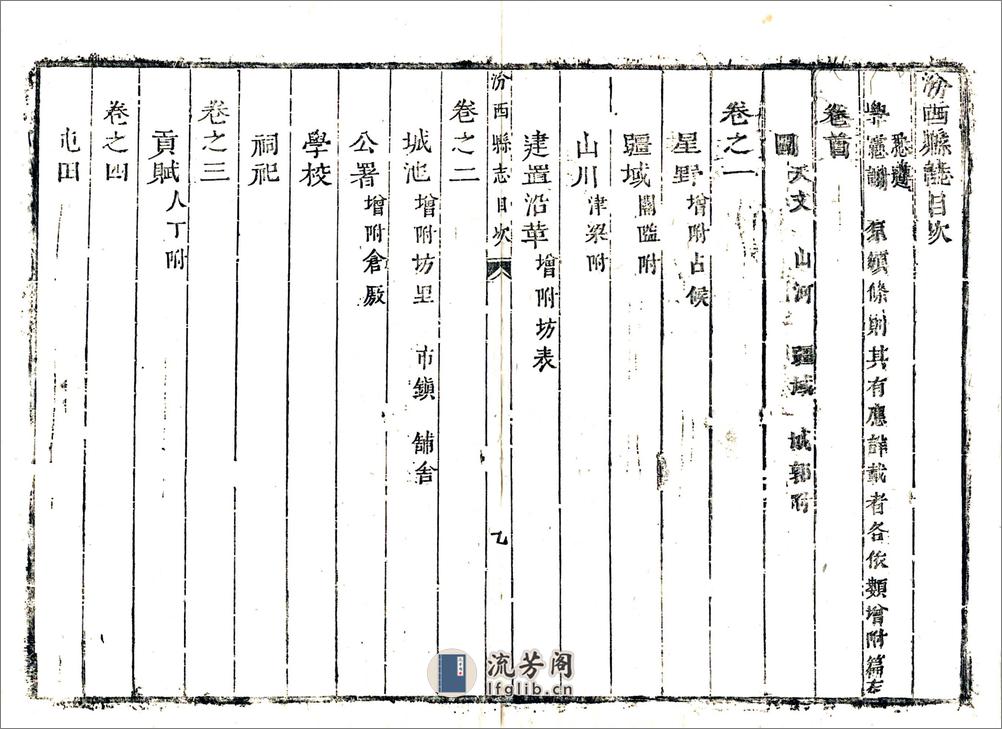 汾西縣誌目次
悉遵
學憲調 原頒條則其有應詳載者各依類增附篇左
卷首
圖 天文 山河 疆域 城郭附
卷之一
星野 增附占候
疆域 關隘附
山川 津梁附
建置沿革 增附坊表
汾西縣志 目次 乙
卷之二
城池 增附坊里 市鎮 舖舍
公署 增附倉厫
學校
祠祀
卷之三
貢賦 人丁附
卷之四
屯田
流芳阁
lfglib.cn